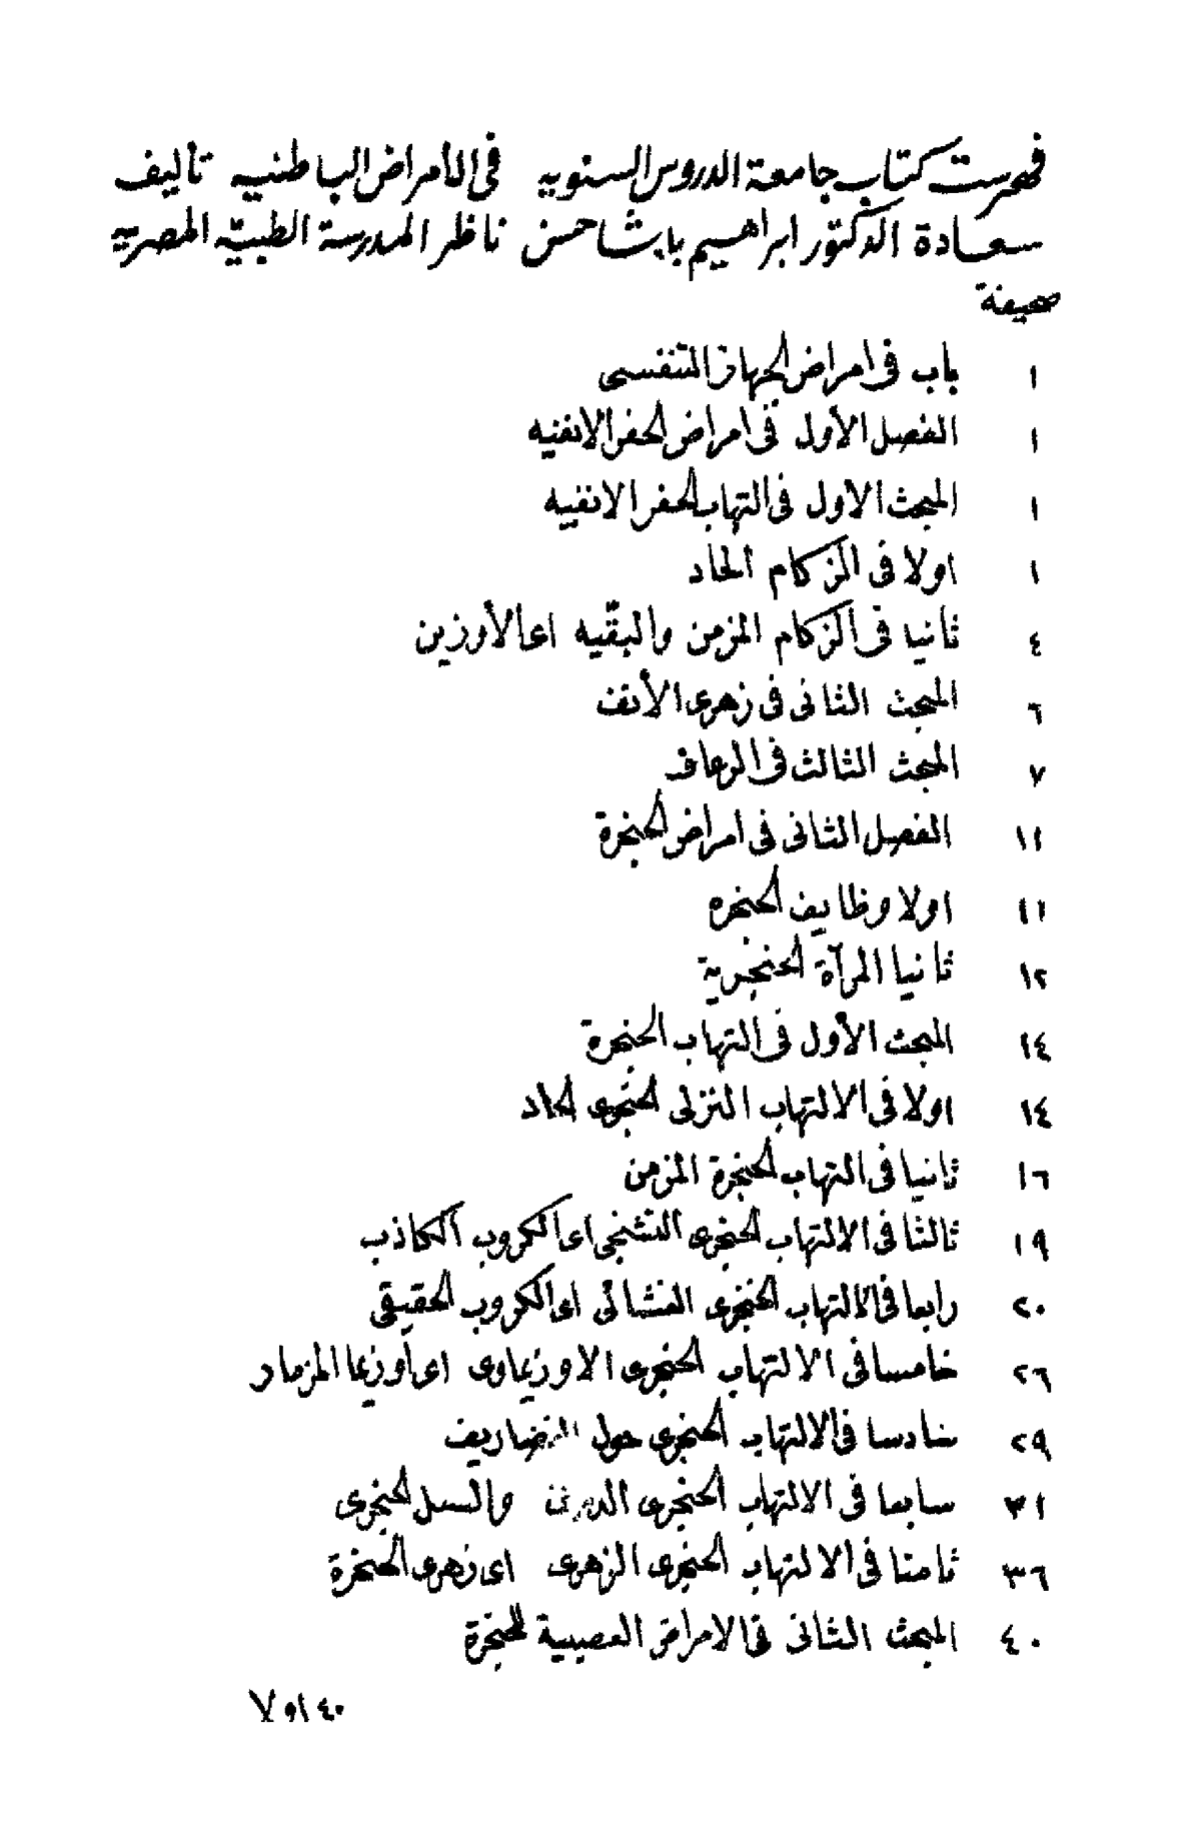 فهرست كتاب جامعة الدروس السنويه فى الأمراض الباطنيه تأليف
سعادة الدكتور ابراهيم باشا حسن ناظر المدرسة الطبيّه المصريه
صحيفة
١ باب فى امراض الجهاز التنفسى
١ الفصل الأول فى امراض الحفر الانفيه
١ المبحث الاول فى التهاب الحفر الانفيه
١ اولا فى الزكام الحاد
٤ ثانيا فى الزكام المزمن والبقّيه اى الأوزين
٦ المبحث الثانى فى زهرى الأنف
٧ المبحث الثالث فى الرعاف
١١ الفصل الثانى فى امراض الحنجرة
١١ اولا وظايف الحنجره
١٢ ثانيا المرآة الحنجرية
١٤ المبحث الأول فى التهاب الحنجرة
١٤ اولا فى الالتهاب النزلى الحنجرى الحاد
١٦ ثانيا فى التهاب الحنجرة المزمن
١٩ ثالثا فى الالتهاب الحنجرى التشنجى اى الكروب الكاذب
٢٠ رابعا فى الالتهاب الحنجرى الغشائى اى الكروب الحقيقى
٢٦ خامسا فى الالتهاب الحنجرى الاوزيماوى اى أوزيما المزمار
٢٩ سادسا فى الالتهاب الحنجرى حول الغضاريف
٣١ سابعا فى الالتهاب الحنجرى الدرنى والسل الحنجرى
٣٦ ثامنا فى الالتهاب الحنجرى الزهرى اى زهرى الحنجرة
٤٠ المبحث الثانى فى الامراض العصبية للحنجرة